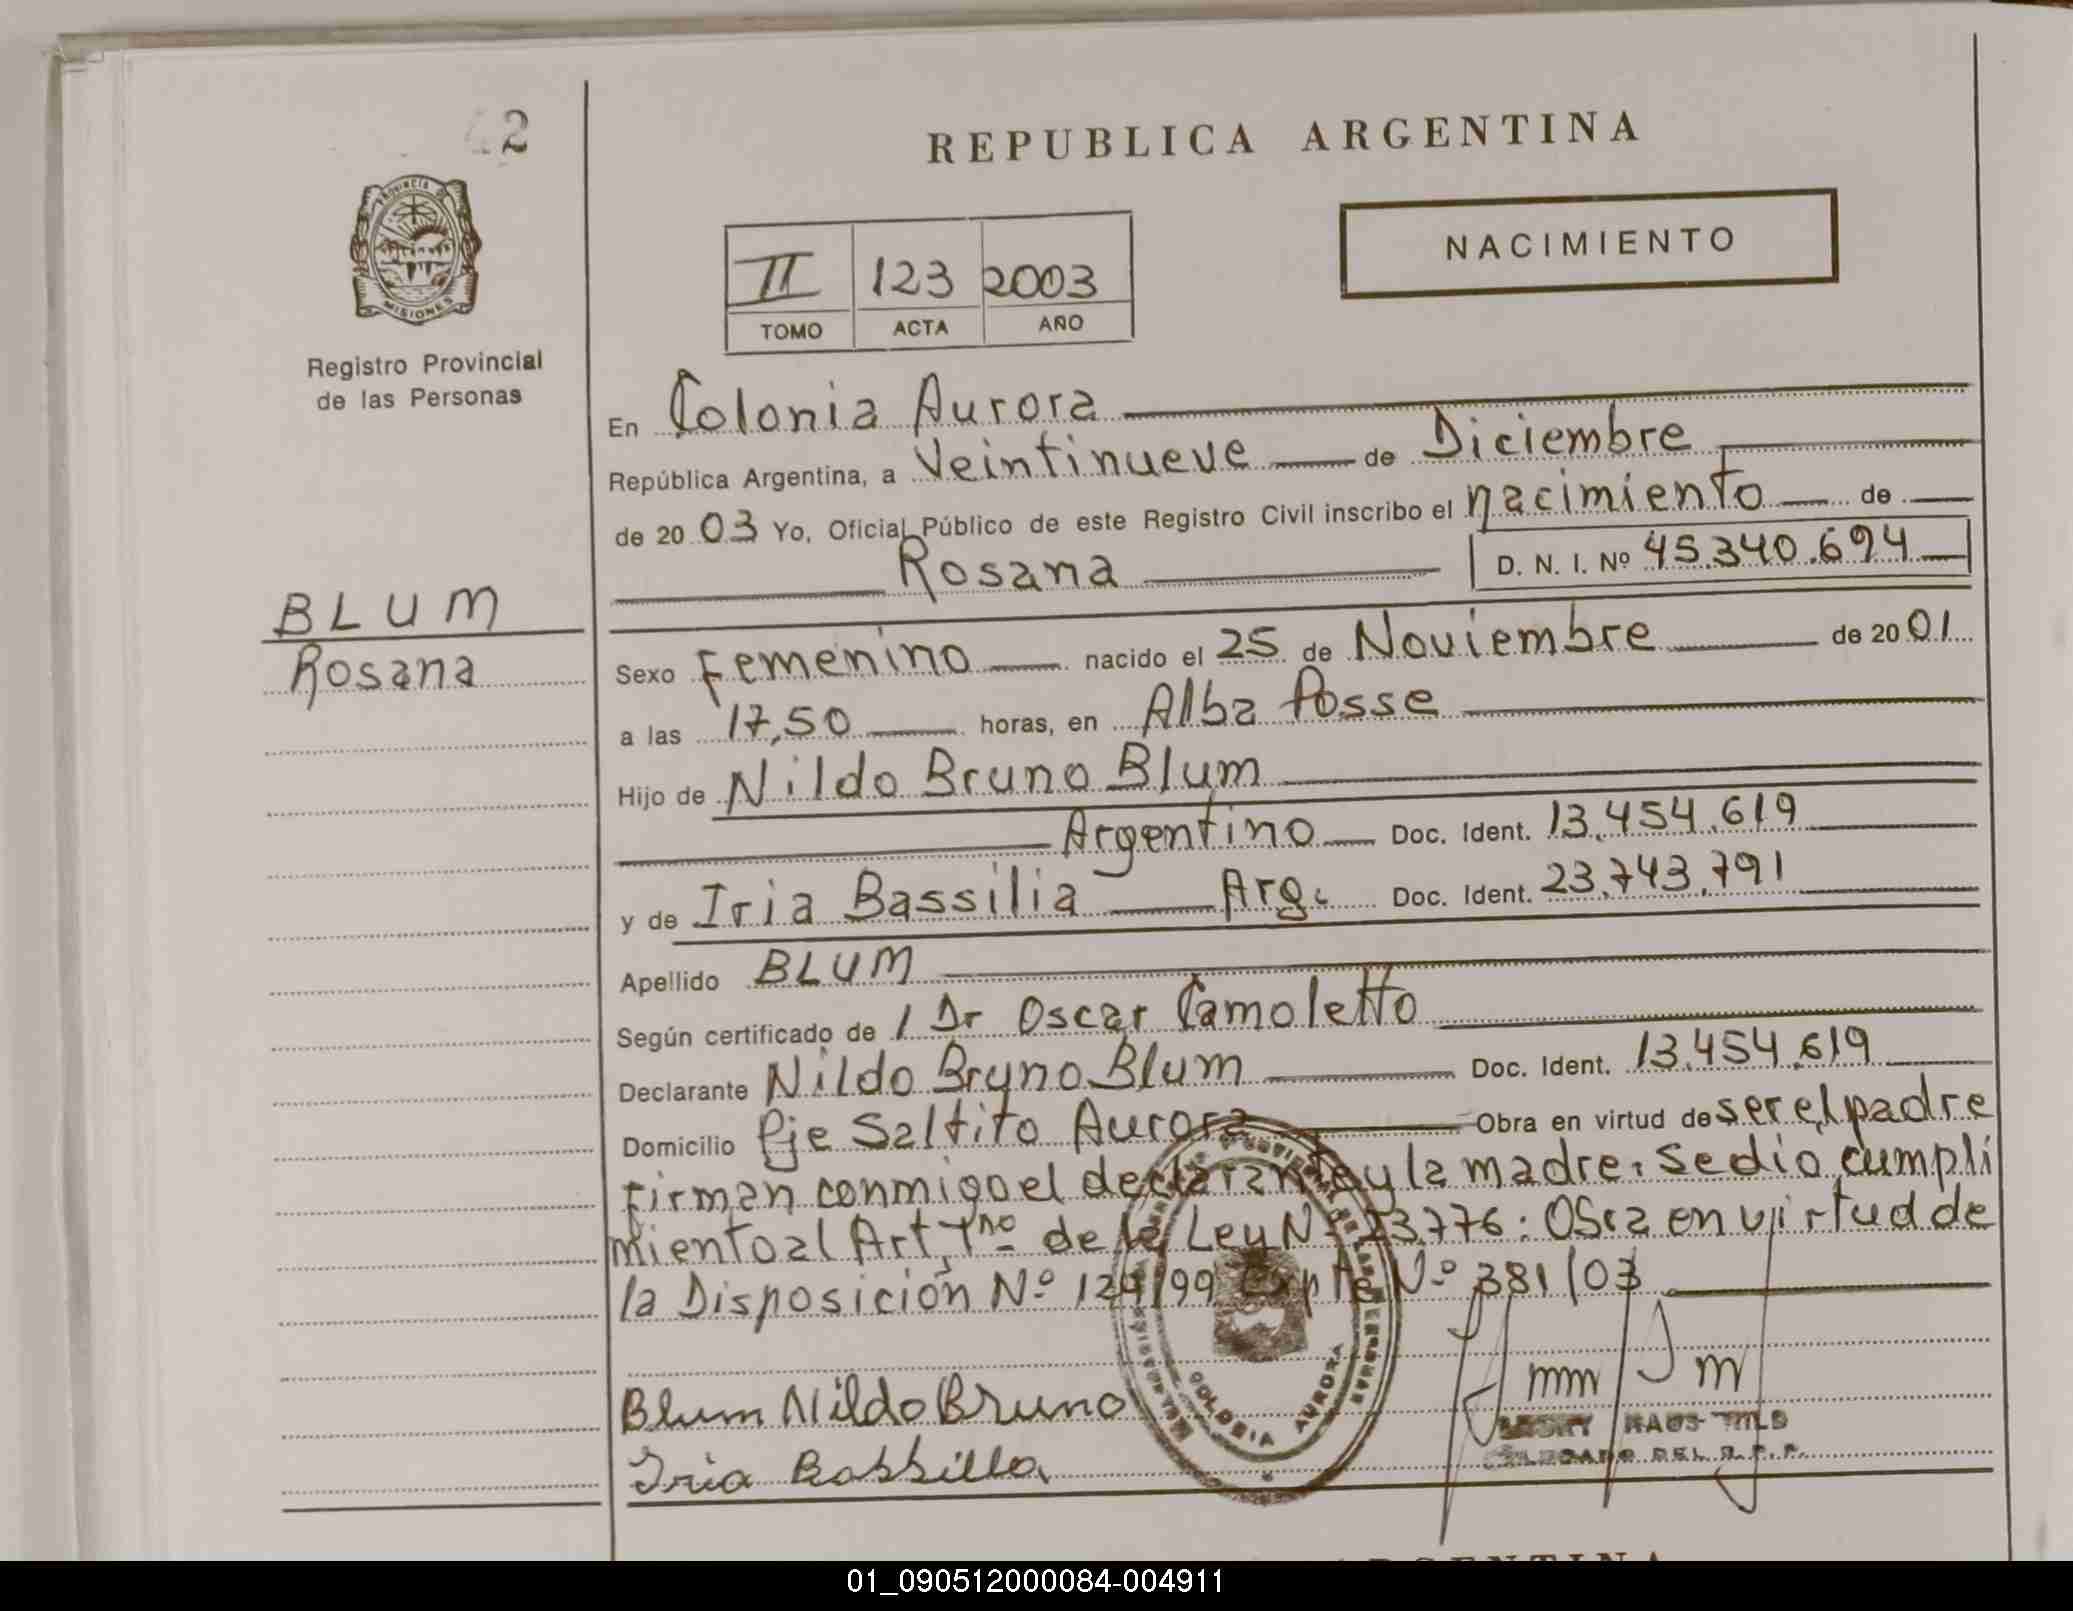 42
REPUBLICA ARGENTINA
PROVINCIA DE
MISIONES
Registro Provincial
de las Personas
NACIMIENTO
II 123 2003
TOMO ACTA AÑO
En Colonia Aurora
República Argentina, a Veintinueve de Diciembre
de 20 03 Yo, Oficial Público de este Registro Civil inscribo el nacimiento de
Rosana D. N. I. Nº 45.340.694
BLUM
Rosana
Sexo Femenino nacido el 25 de Noviembre de 20 01
a las 17,50 horas, en Alba Posse
Hijo de Nildo Bruno Blum
Argentino Doc. Ident. 13.454.619
y de Iria Bassilia Arg. Doc. Ident. 23.743.791
Apellido BLUM
Según certificado de / Dr Oscar Camoletto
Declarante Nildo Bruno Blum Doc. Ident. 13.454.619
Domicilio Pje Saltito Aurora Obra en virtud de ser el padre
firman conmigo el declarante y la madre. Se dio cumpli
miento al Art. 1no de la Ley Nº 23.776: OSea en virtud de
la Disposición Nº 124/99 Expte Nº 381/03
Blum Nildo Bruno
Iria Bassilla
COLONIA AURORA
DELEGADO DEL R.P.P.
ARGENTINA
01_090512000084-004911